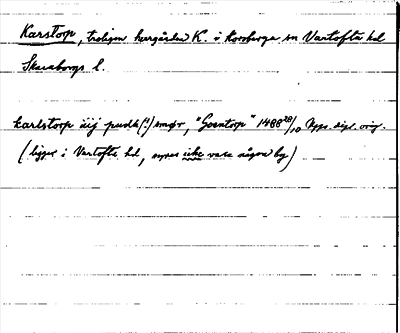 Karstorp, troligen herrgården K. i Korsberga sn Vartofta hd
Skaraborgs l.
karlstorp iiij pundh (!) smör, "Goentorp" 1488 28/10 Upps. dipl. orig.
(ligger i Vartofta hd, synes icke vara någon by)